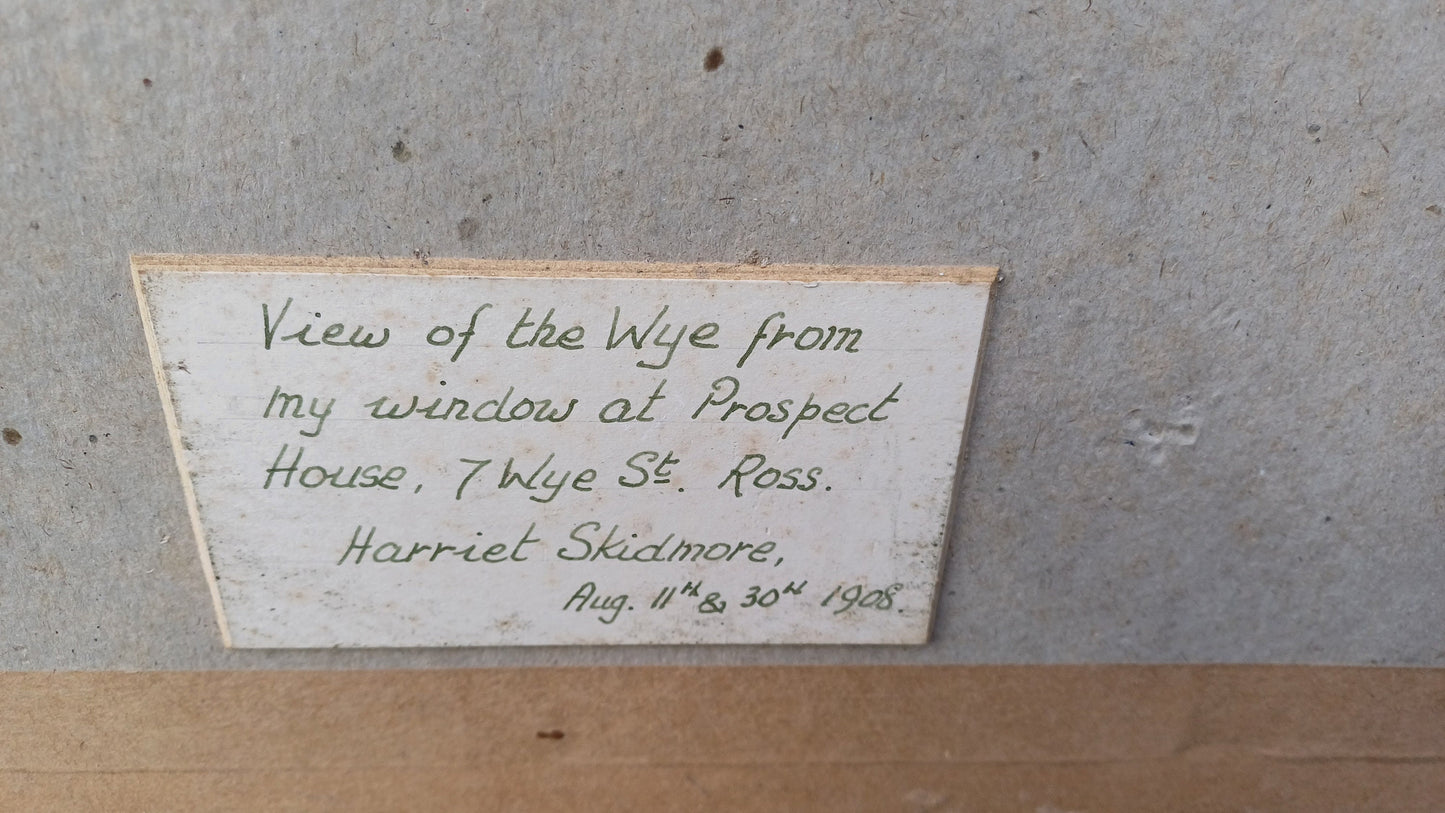 View of the Wye from
my window at Prospect
House, 7 Wye St. Ross.
Harriet Skidmore,
Aug. 11th & 30th 1908.